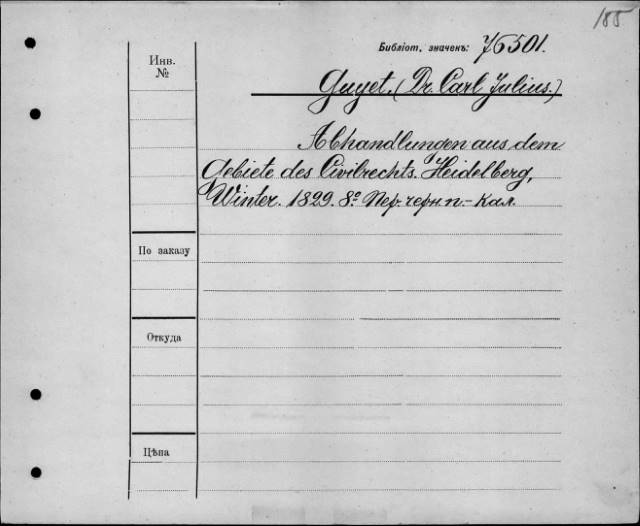 185
Библіот. значекъ: 76501.
Инв.
№
Guyet. (Dr. Carl Julius.)
Abhandlungen aus dem
Gebiete des Civilrechts. Heidelberg,
Winter. 1829. 8º Пер. черн. п.-кал.
По заказу
Откуда
Цѣна